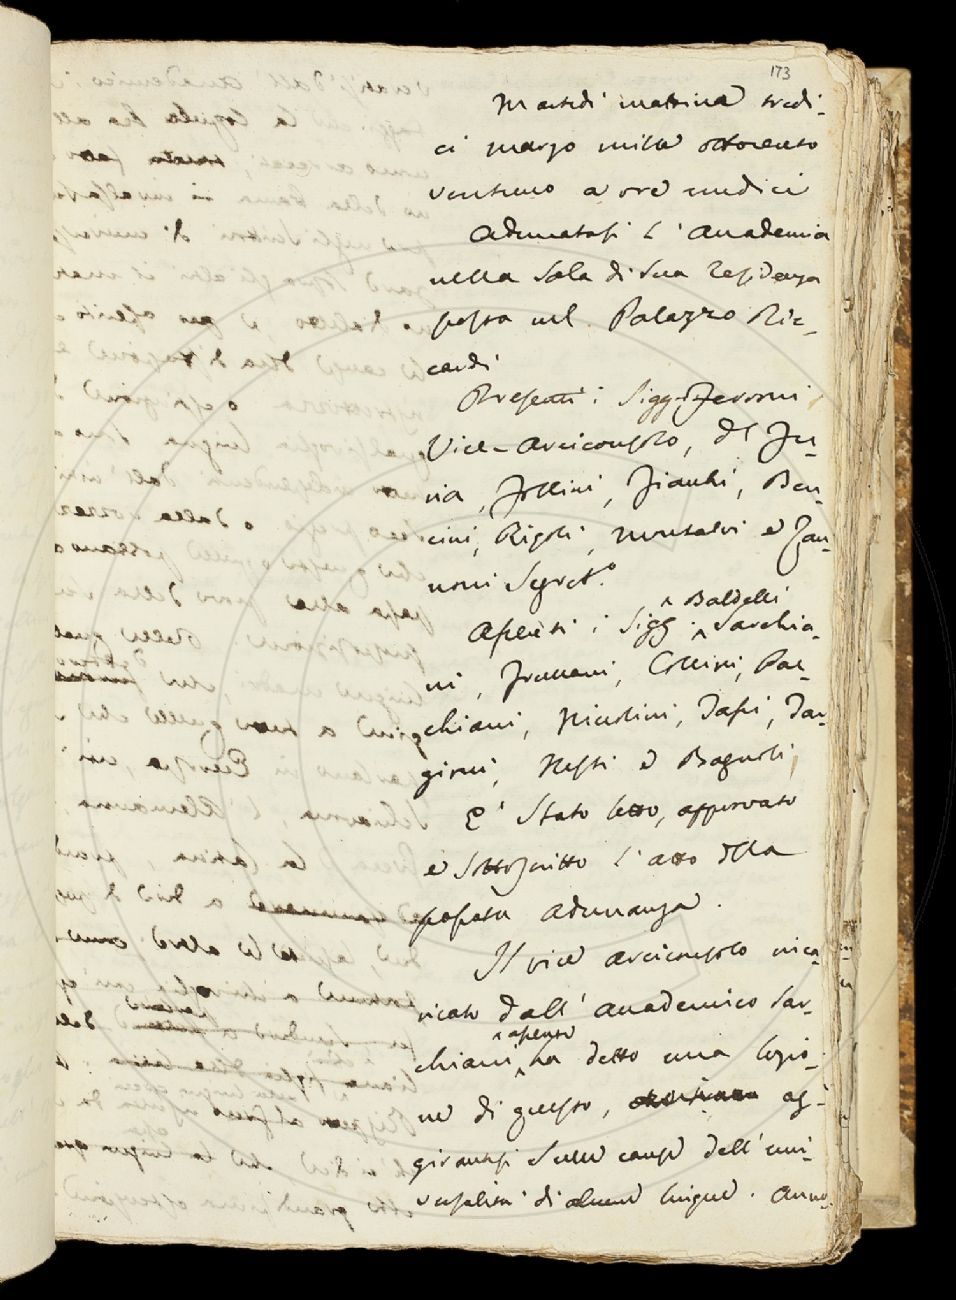 173
Martedì mattina tredi-
ci marzo mille ottocento
ventuno a ore undici
Adunatasi l'Accademia
nella Sala di Sua Residenza
posta nel Palazzo Ric-
cardi
Presenti i Sigg. Ferroni
Vice-Arciconsolo, del Fu-
ria, Follini, Fiacchi, Ben-
cini, Rigoli, Montalvi e Zan-
noni Segret.º
Assenti i Sigg. Baldelli Sarchia-
ni, Frullani, Collini, Pac-
chiani, Niccolini, Tassi, Tar-
gioni, Nesti e Bagnoli,
E' Stato letto, approvato
e Sottoscritto l'atto della
passata adunanza.
Il vice arciconsolo inca-
ricato dall'Accademico Sar-
chiani assente ha detto una lezio-
ne di questo, ag-
girantesi Sulle cause dell'uni-
versalità di alcune lingue. Anno-